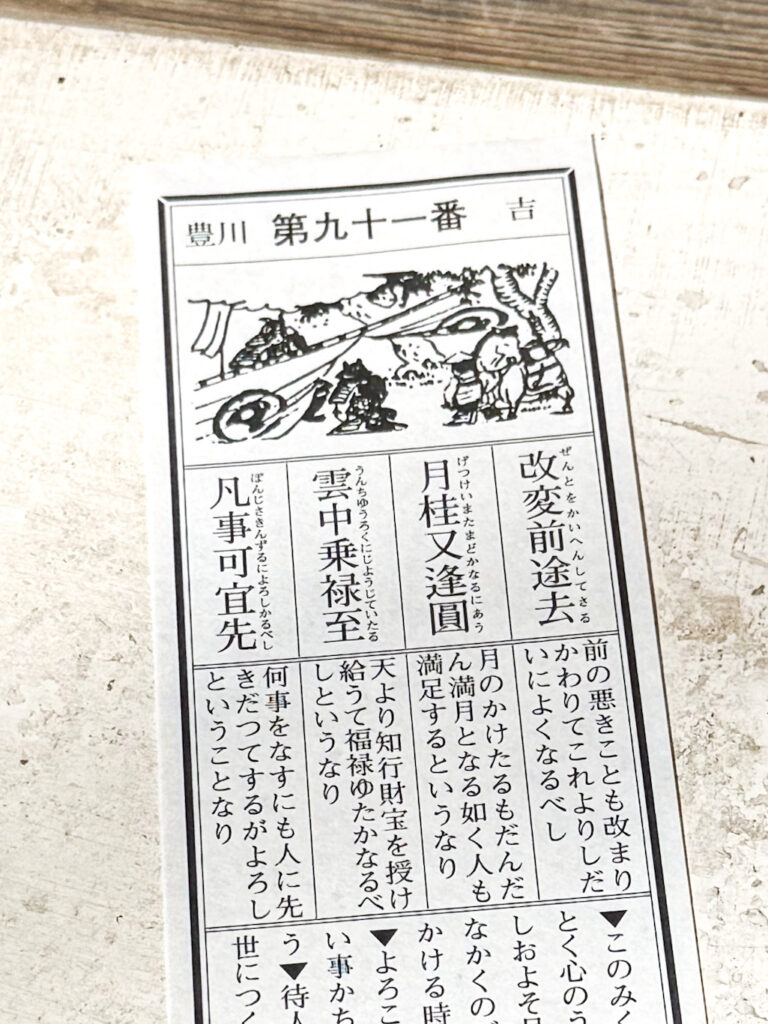 豊川 第九十一番 吉
改変前途去
ぜんとをかいへんしてさる
月桂又逢圓
げつけいまたまどかなるにあう
雲中乗禄至
うんちゆうろくにじようじていたる
凡事可宜先
ぼんじさきんずるによろしかるべし
前の悪きことも改まり
かわりてこれよりしだ
いによくなるべし
月のかけたるもだんだ
ん満月となる如く人も
満足するというなり
天より知行財宝を授け
給うて福禄ゆたかなるべ
しというなり
何事をなすにも人に先
きだつてするがよろし
ということなり
▼このみく
とく心のう
しおよそ
なかくの
かける時
▼よろこ
い事かち
う▼待人
世につく